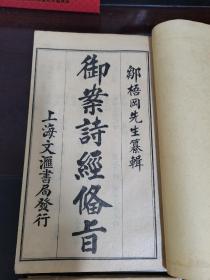 鄒梧岡先生纂輯
御案詩經備旨
上海文滙書局發行